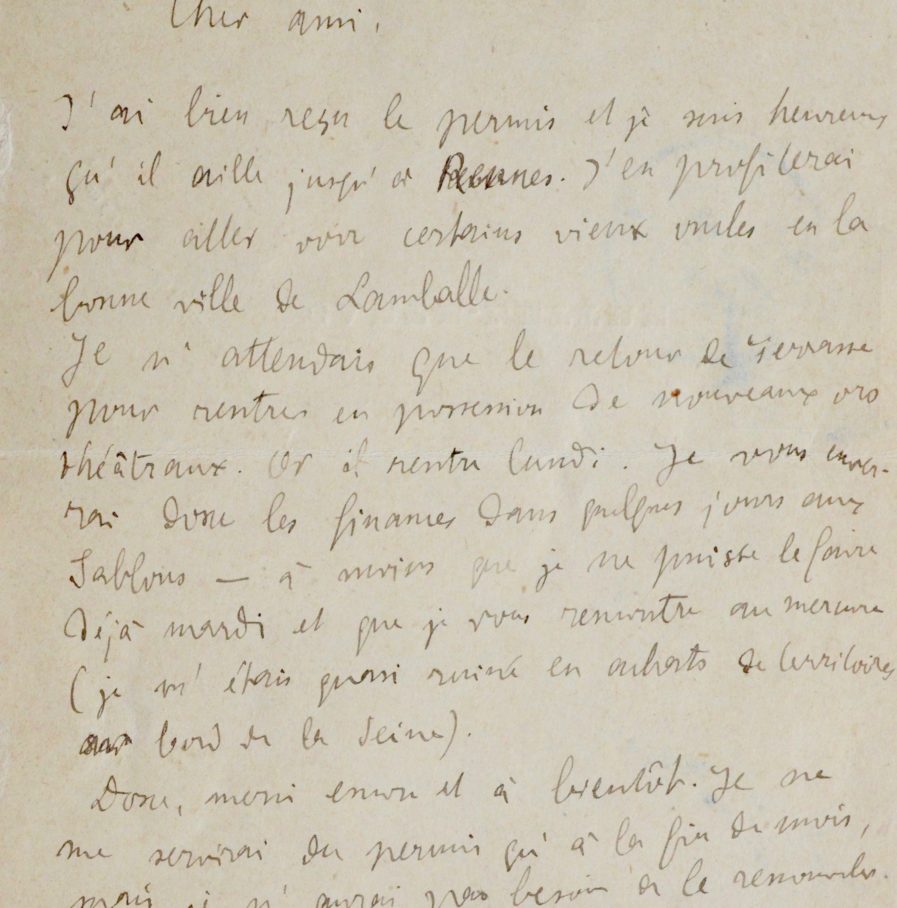 Cher ami,
J'ai bien reçu le permis et je suis heureux
qu'il aille jusqu'à Rennes. J'en profiterai
pour aller voir certains vieux oncles en la
bonne ville de Lamballe.
Je n'attendais que le retour de Terrasse
pour rentrer en possession de nouveaux ors
théâtraux. Or il rentre lundi. Je vous enver-
rai donc les finances dans quelques jours aux
Sablons — à moins que je ne puisse le faire
déjà mardi et que je vous rencontre au mercure
(je m'étais quasi ruiné en achats de territoires
au bord de la Seine).
Donc, merci encore et à bientôt. Je ne
me servirai du permis qu'à la fin du mois,
mais je n'aurai pas besoin de le renouveler.